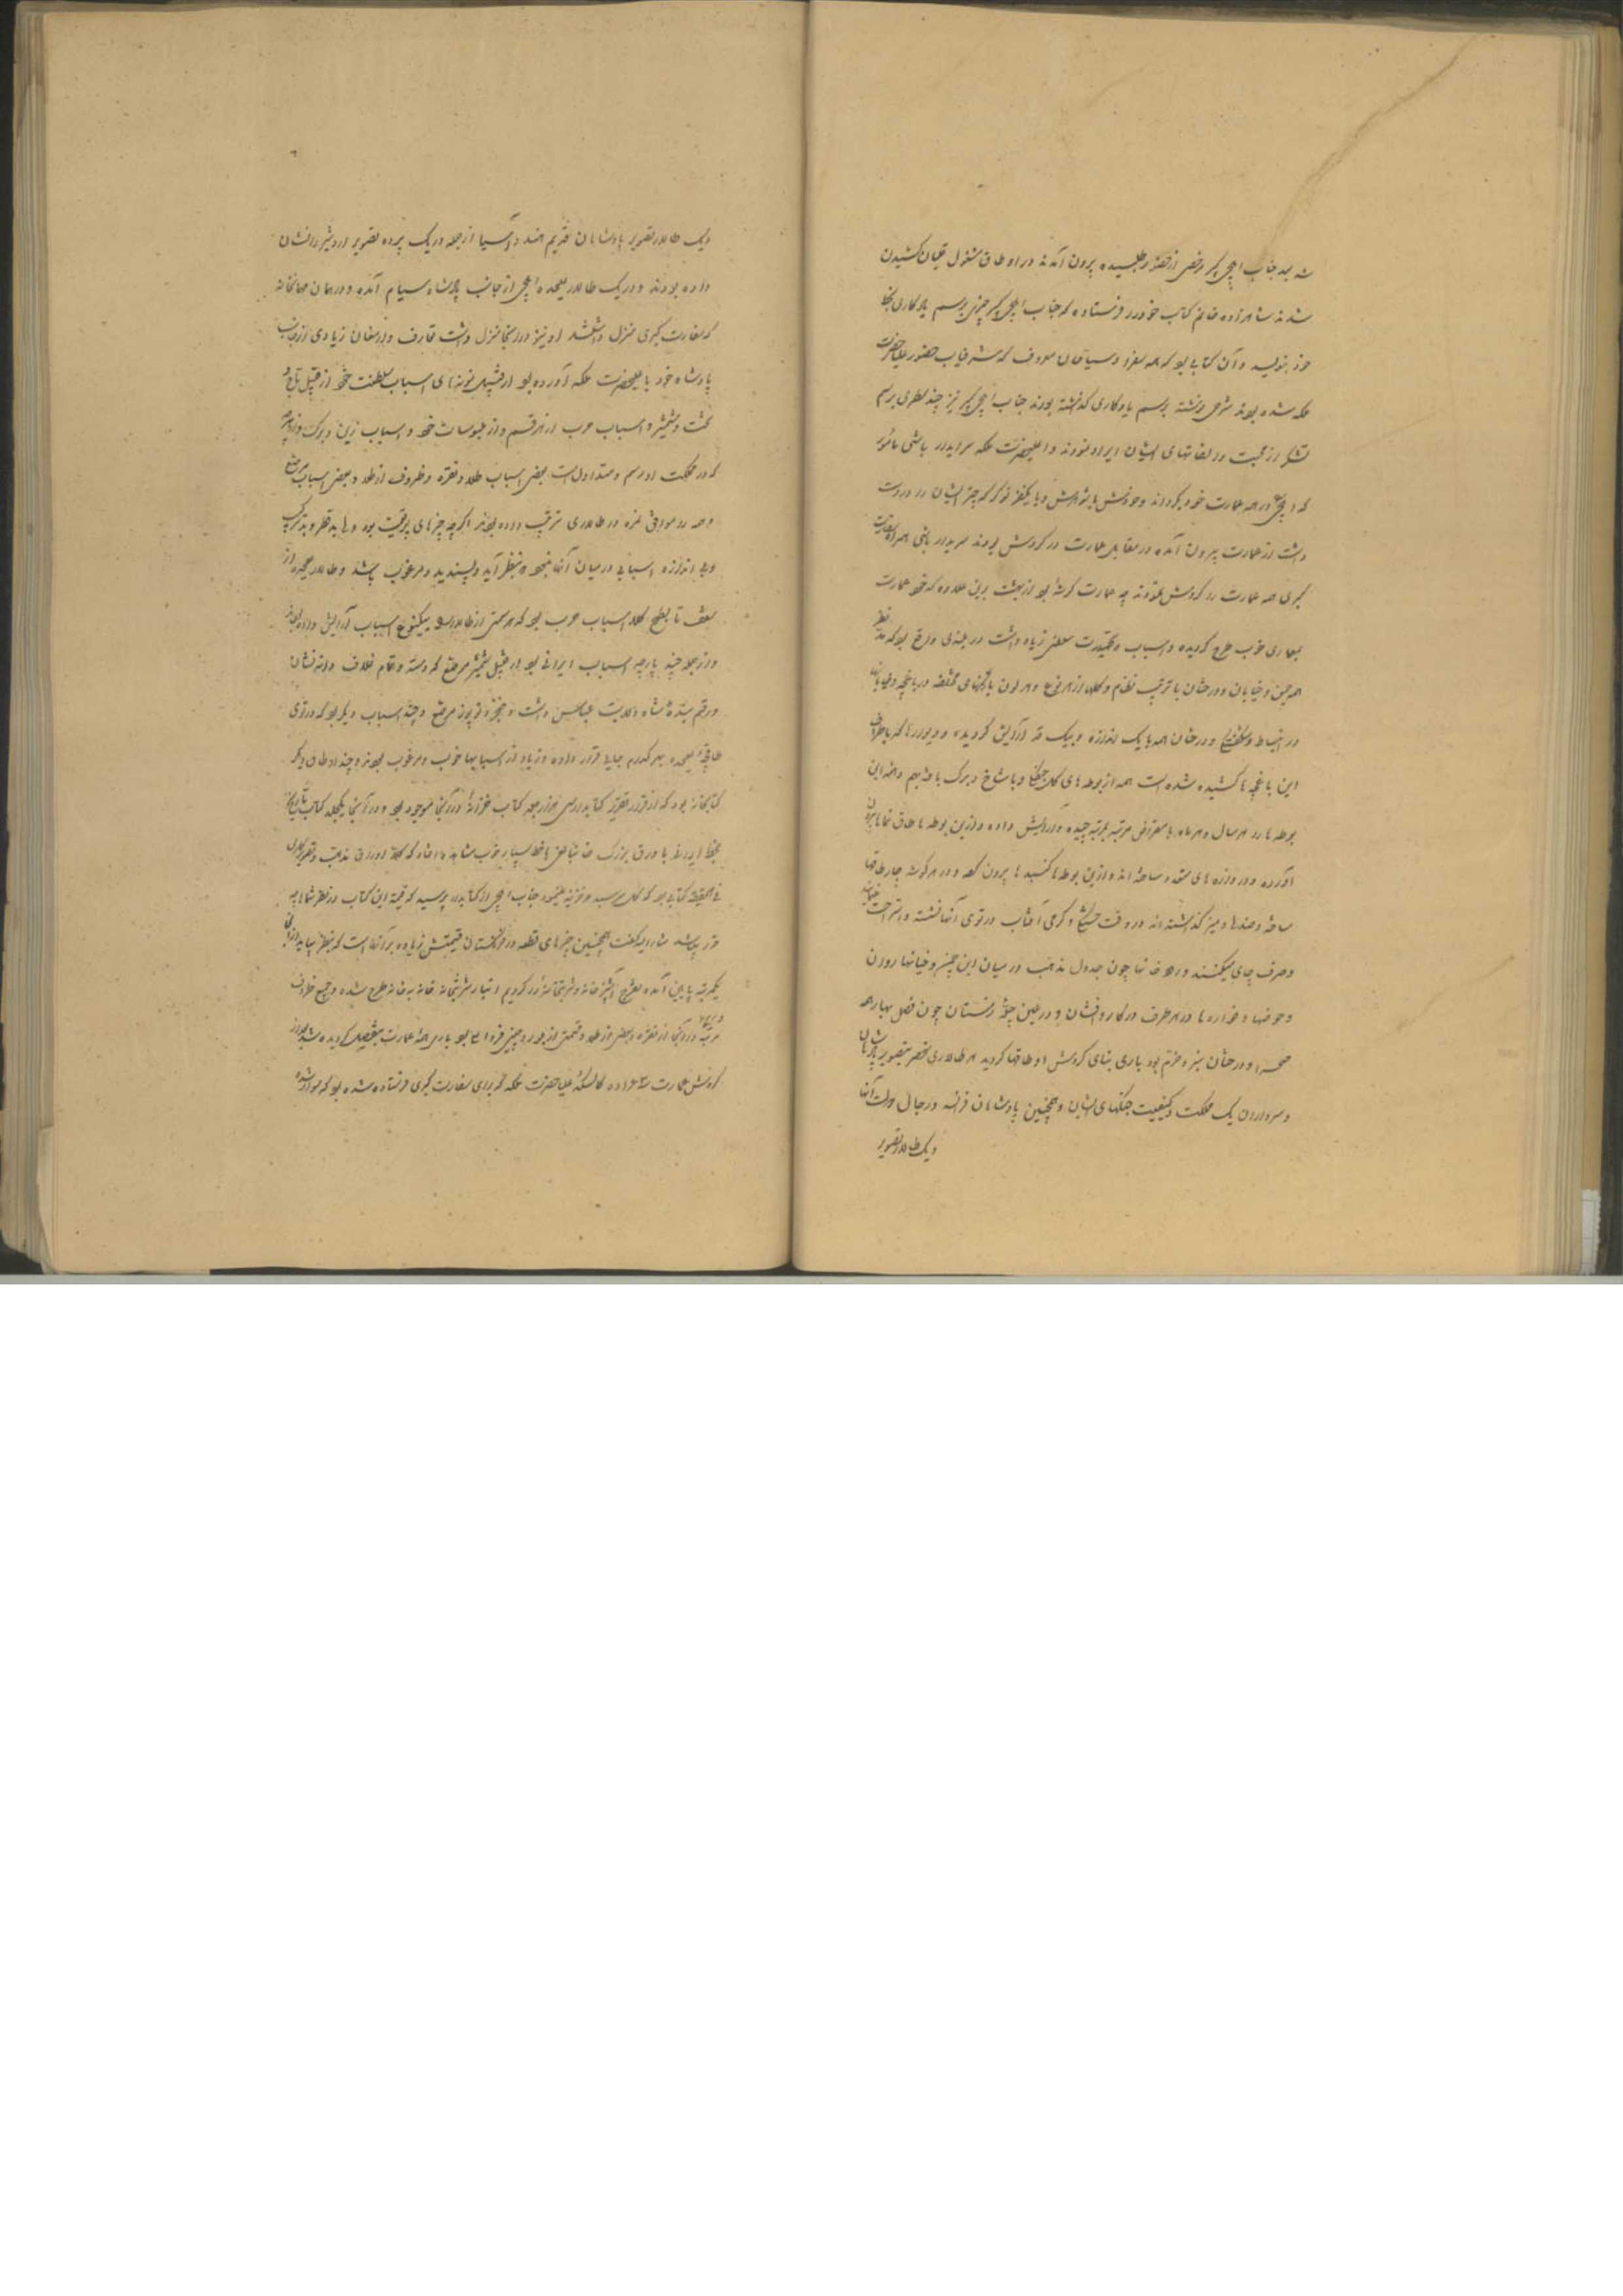 شد بعد جناب ایلچی کبیر مرخصی از حضور طلبیده بیرون آمدند در اوطاق مشغول قلیان کشیدن
شدند شاهزاده خانم کتاب خود را فرستاده که جناب ایلچی کبیر چیزی برسم یادگاری بخط
خود بنویسد و آن کتابی بود که همه سفرا و سیاحان معروف که شرفیاب حضور علیاحضرت
ملکه شده بودند شرحی نوشته برسم یادگاری گذاشته بودند جناب ایلچی کبیر نیز چند سطری برسم
تشکر از محبت و التفاتهای ایشان ایراد نمودند و اعلیحضرت ملکه سرایدار باشی مأمور
که ایلچی را در همه عمارت خود بگرداند و خودش با شوهرش و با یکنفر نوکر که چتر ایشان را در دست
داشت از عمارت بیرون آمده در مقابل عمارت در گردش بودند سریدار باشی همراه سفارت
کبری همه عمارت را گردش نمودند چه عمارت که شه بود از بهشت برین علاوه که خود عمارت
بمعماری خوب طرح گردیده و اسباب و تجملات سلطنتی زیاد داشت در بلندی واقع بود که مد نظر
همه چمن و خیابان و درختان با ترتیب نظام و گلها از هر نوع و هر لون با رنگهای مختلفه در باغچه و خیابانها
در انبساط و شکفتگی و درختان همه با یک اندازه و بیک قد آرایش گردیده و دیوارها که باطراف
این باغچه ها کشیده شده است همه از بوطه های گل و با شاخ و برگ بافته بهم و همه این
بوطه ها را هر سال و هر ماه با مقراض مرتبه بمرتبه چیده و آرایش داده و ازین بوطه ها طاق نماها بیرون
آورده و دروازه های متعدد ساخته اند و ازین بوطه ها گنبدها بیرون کرده و در هر گوشه چارطاقها
ساخته و صندلها و میز گذاشته اند در وقت و گرمی آفتاب در توی آنها نشسته و استراحت
و صرف چای میکنند و رودخانها چون جدول مذهب در میان این چمن و خیابانها روان
و حوضها و فواره ها در هر طرف در کار و افشان و در عین چله زمستان چون فصل بهار همه
صحرا و درختان سبز و خرم بود باری بنای گردش اوطاقها گردید هر طالاری منحصر بتصویر پادشاهان
و سرداران یک مملکت و کیفیت جنگهای ایشان و همچنین پادشاهان فرانسه و رجال دولت آنها
و یک طالار تصویر
و یک طالار تصویر پادشاهان قدیم هند و آسیا از جمله در یک پرده تصویر اردشیر را نشان
داده بودند و در یک طالار علیحده ایلچی از جانب پادشاه سیام آمده و در همان مهمانخانه
که سفارت کبری منزل داشتند او نیز در آنجا منزل داشت تعارف و ارمغان زیادی از جانب
پادشاه خود با علیحضرت ملکه آورده بود از قبیل نمونه های اسباب سلطنت خود از قبیل تاج و
تخت و شمشیر و اسباب حرب از هر قسم و از ملبوسات خود و اسباب زین و برگ و از هر چه
که در مملکت او رسم و متداول است بعضی اسباب طلا و نقره و ظروف از طلا و بعضی اسباب مرصع
همه را موافق نمره در طالاری ترتیب داده بودند اگرچه چیزهای پرقیمت بود ولی بد قطر و بدترکیب
و بی اندازه اسبابی در میان آنها نبود که بنظر آید و پسندیده و مرغوب باشد و طالار علیحده از
سقف تا بسطح کلا اسباب حرب بود که هر سمتی از طالار را بیکنوع اسباب آرایش داده بودند
و از جمله چند پارچه اسباب ایرانی بود از قبیل شمشیر مرصع که دسته و تمام غلاف دانه نشان
و رقم بنده شاه ولایت عباس داشت و خنجر و توپوز مرصع و چند اسباب دیگر بود که در توی
طاقچه علیحده بهر کدام جایی قرار داده و زیاد از اسبابها خوب و مرغوب بودند و چند اوطاق دیگر
کتابخانه بود که از قرار تقریر کتابدار سی هزار جلد کتاب خزانه در آنجا موجود بود و در آنجا یکجلد کتاب تاریخ
بخط با ورق بزرگ خانبالغ با خط بسیار خوب مشاهده افتاد که کلا اوراق تذهیب و تصویر
فی الحقیقه کتابی بود که کل سرسبد هر خزینه میشود جناب ایلچی از کتابدار پرسید که قیمة این کتاب در نظر شما چه
قدر باشد مشارالیه گفت همچنین چیزهای قطعه در فرنگستان قیمتش زیاده بر آنها است که بنظر بیاید
یکمرتبه پایین آمده بتفرج آشپزخانه و شربتخانه را کردیم انبار شربتخانه خانه به خانه طرح شده و جمیع ظروف
مرتبه در آنجا از نقره و بعضی از طلا و قسمتی از بلور و چینی فراوان بود باری همه عمارت بتفصیل گردیده شد بعد از
گردش عمارت سه عراده کالسکه علیاحضرت ملکه که برای سفارت کبری فرستاده شده بود که سوار شده